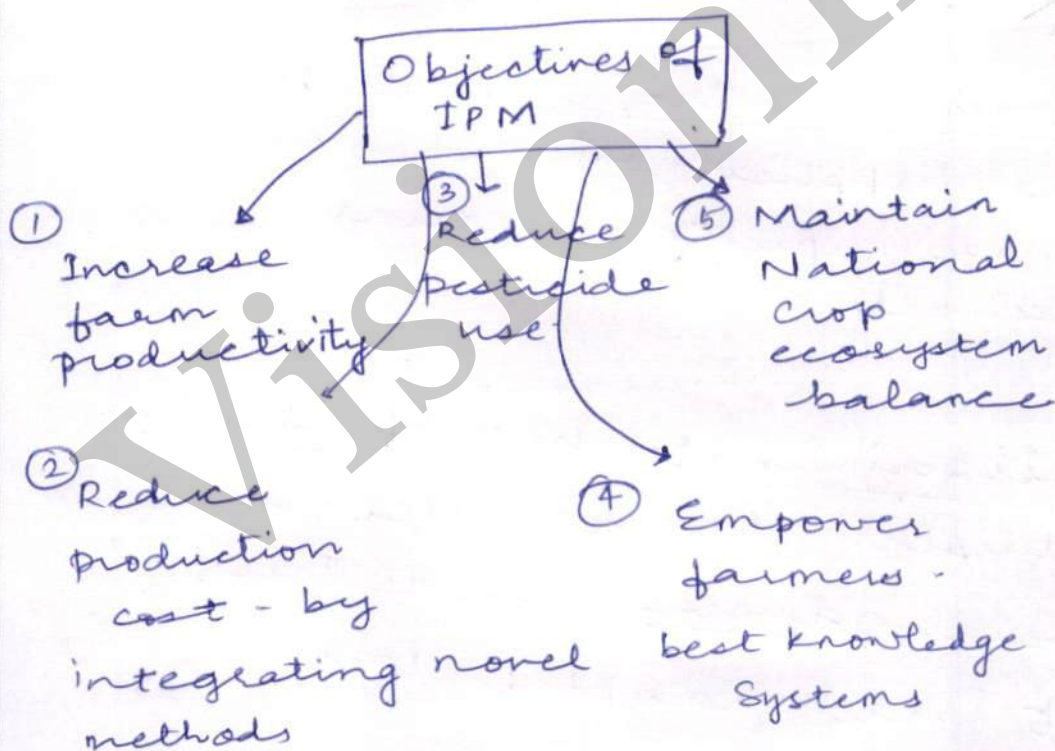 Objectives of
IPM
①
Increase
farm
productivity
②
Reduce
production
cost - by
integrating novel
methods
③
Reduce
pesticide
use
④
Empower
farmers -
best knowledge
Systems
⑤ Maintain
National
crop
ecosystem
balance
Vision